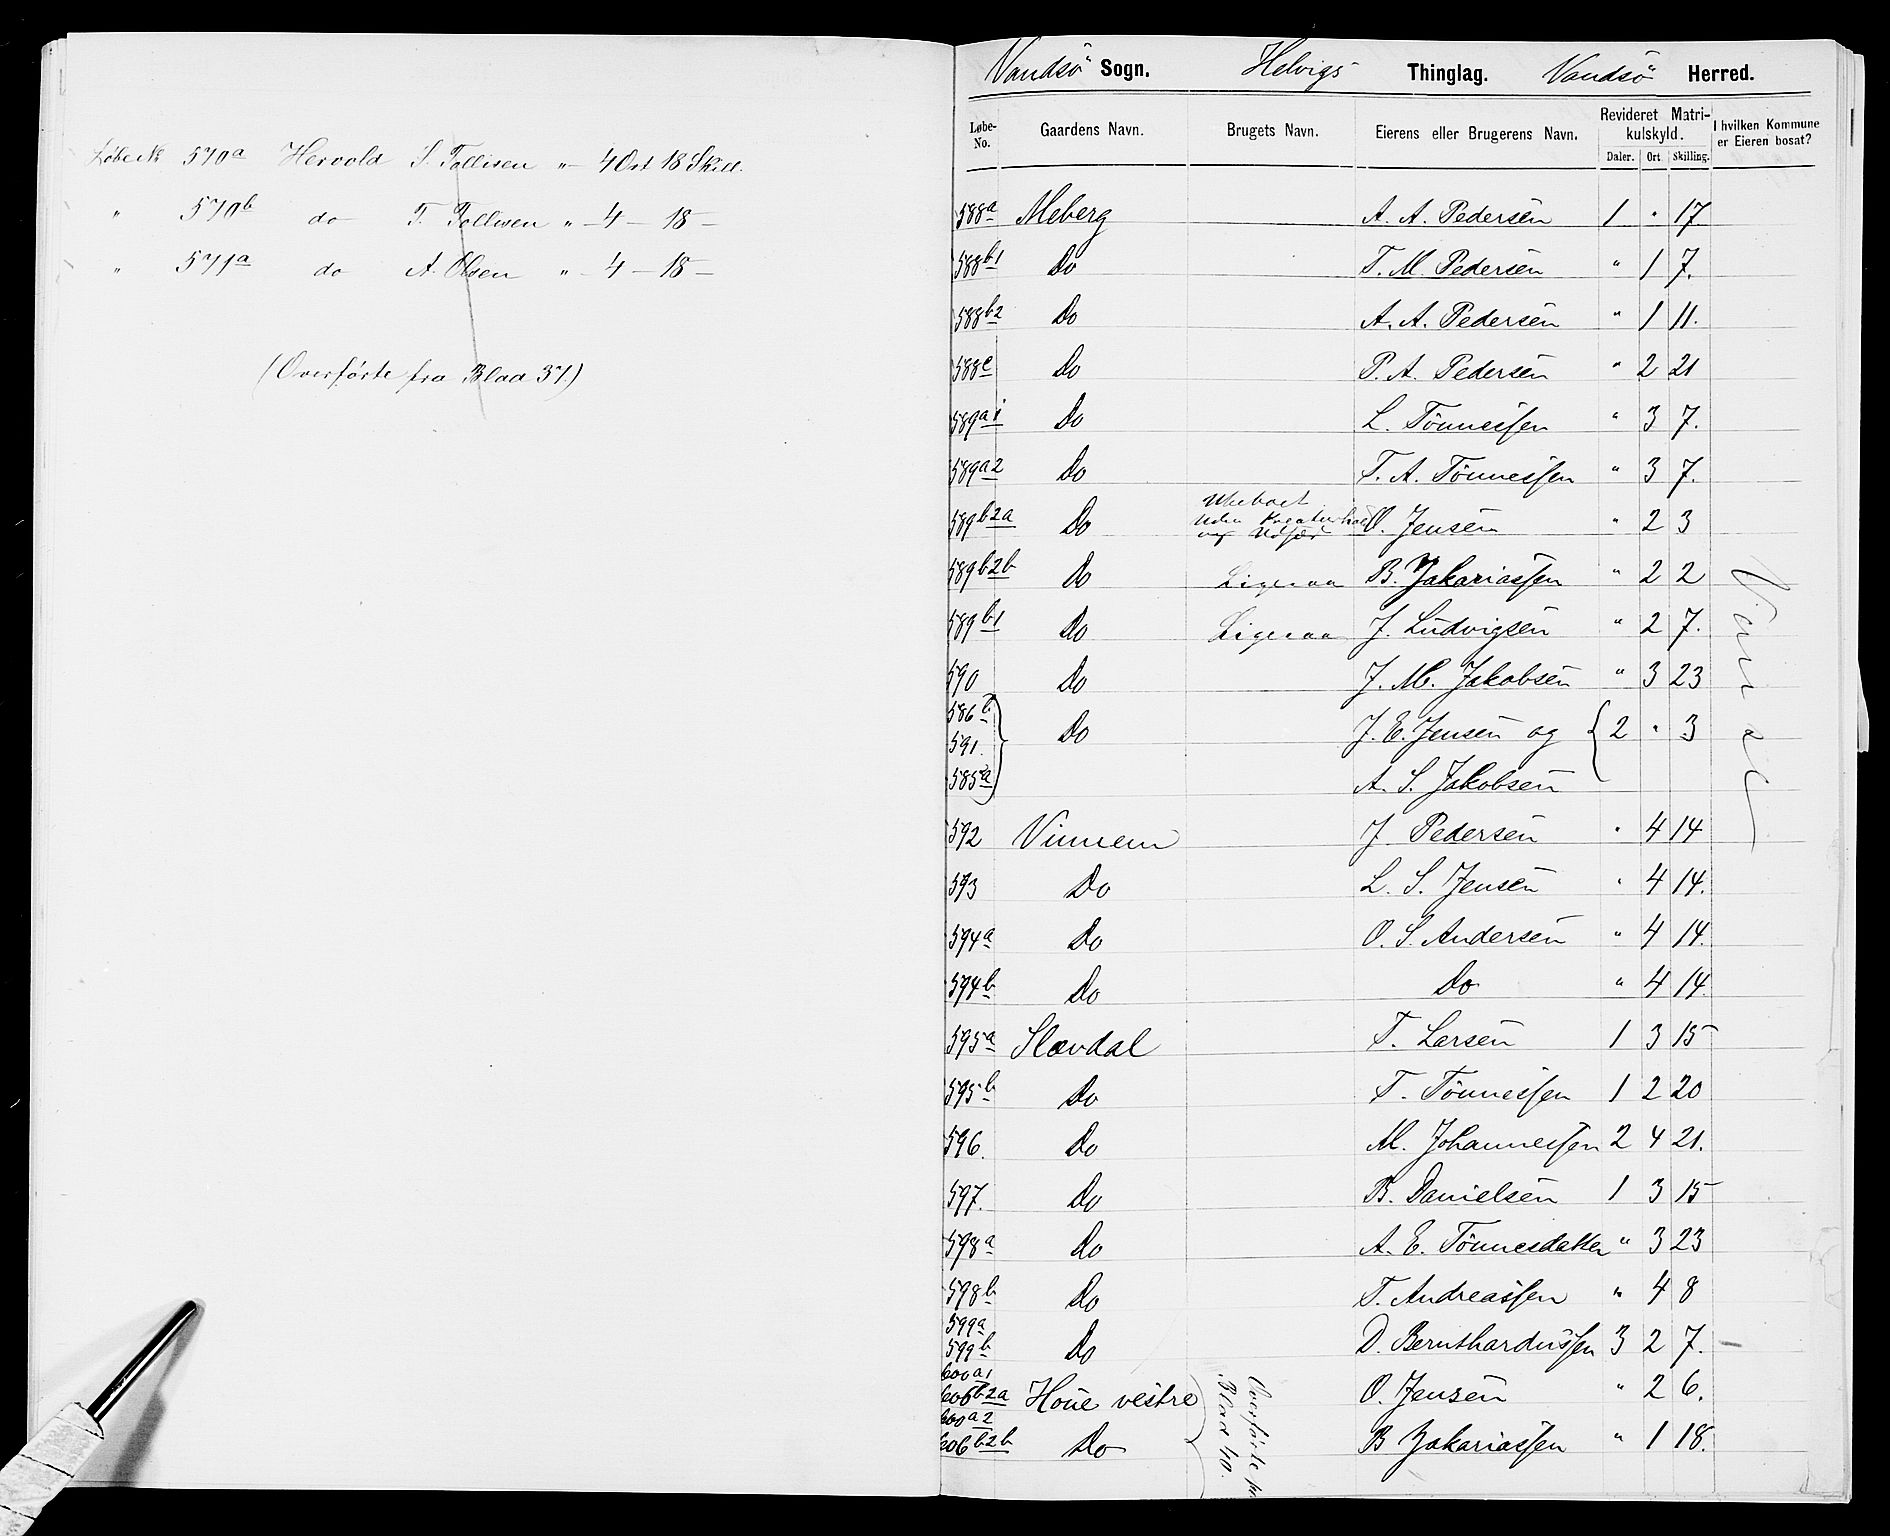 Løbe № 570a Hervold S. Tollisen " 4 Ort 18 Skill.
" 570b do T. Tollisen " 4 — 18 —
" 571a do A. Olsen " 4 — 18 —
(Overførte fra Blad 37.)
Vandsö Sogn. Helvigs Thinglag. Vandsö Herred.
Løbe-No. Gaardens Navn. Brugets Navn. Eierens eller Brugerens Navn. Revideret Matrikulskyld. Daler. Ort Skilling. I hvilken Kommune er Eieren bosat?
588a Meberg A. A. Pedersen 1 " 17.
588b1 Do T. M. Pedersen " 1 7.
588b2 Do A. A. Pedersen " 1 11.
588c Do P. A. Pedersen " 2 21
589a1 Do L. Tönnessen " 3 7.
589a2 Do T. A. Tönnessen " 3 7.
589b2a Do Ubeboet uden Kreaturhold og Udsæd O. Jensen " 2 3
589b2b Do Ligesaa B. Zakariassen " 2 2
589b1 Do Ligesaa J. Ludvigsen " 2 7.
590 Do J. M. Jakobsen " 3 23
586b
591. Do J. E. Jensen og 2 " 3
585a A. S. Jakobsen
592 Vinnem J. Pedersen " 4 14
593 Do L. S. Jensen " 4 14.
594a Do O. S. Andersen " 4 14.
594b Do Do " 4 14.
595a Slævdal T. Larsen 1 3 15
595b Do T. Tönnessen 1 2 20
596. Do M. Johannessen 2 4 21.
597. Do B. Danielsen 1 3 15
598a Do A. E. Tönnesdatter " 3 23
598b Do T. Andreassen " 4 8
599a
599b Do D. Bernthardussen 3 2 7.
600a1
606b2a Houe vestre O. Jensen " 2 6.
600a2
606b2b Do B Zakariassen " 1 18.
Overførte
Blad 40.